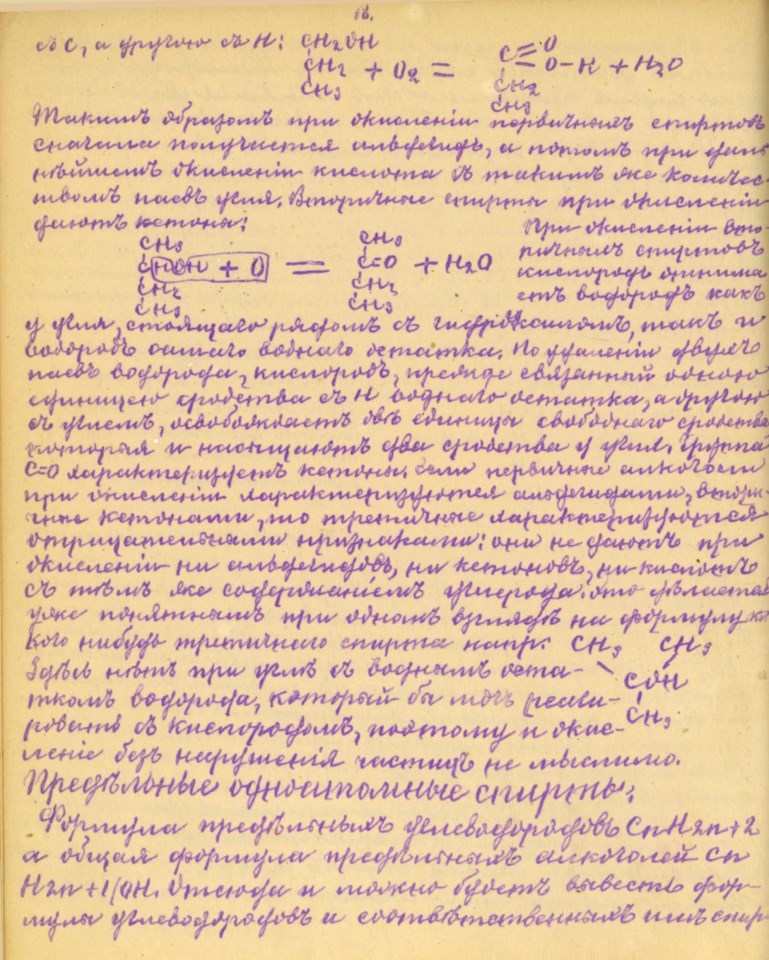 16.
съ C, а другою съ H: CH2OH
CH2 + O2 =
CH3
C=O
O–H + H2O
CH2
CH3
Такимъ образомъ при окисленіи первичныхъ спиртовъ
сначала получается альдегидъ, а потомъ при даль
нѣйшемъ окисленіи кислота съ такимъ же количес-
твомъ паевъ угля. Вторичные спирты при окисленіи
даютъ кетоны:
CH3
CHOH + O
CH2
CH3
=
CH3
C=O + H2O
CH2
CH3
При окисленіи вто-
ричныхъ спиртовъ
кислородъ отнима
етъ водородъ какъ
у угля, стоящаго рядомъ съ гидроксиломъ, такъ и
водородъ самаго воднаго остатка. По удаленіи двухъ
паевъ водорода, кислородъ, прежде связанный одною
единицею сродства съ H воднаго остатка, а другою
съ углемъ, освобождаетъ двѣ единицы свободнаго сродства
которыя и насыщаютъ два сродства у угля. Группа
C=O характеризуетъ кетоны. Если первичные алкоголи
при окисленіи характеризуются альдегидами, втори-
чные кетонами, то третичные характеризуются
отрицательными признаками: они не даютъ при
окисленіи ни альдегидовъ, ни кетоновъ, ни кислотъ
съ тѣмъ же содержаніемъ углерода. Это дѣлается
уже понятнымъ при одномъ взглядѣ на формулу ка
кого нибудь третичнаго спирта напр. CH3 CH3
Здѣсь нѣтъ при углѣ съ воднымъ оста-
COH
ткомъ водорода, который бы могъ реаги-
CH3
ровать съ кислородомъ, поэтому и окис-
леніе безъ нарушенія частицъ не мыслимо.
Предѣльные одноатомные спирты:
Формула предѣльныхъ углеводородовъ CnH2n+2
а общая формула предѣльныхъ алкоголей Cn
H2n+1(OH. Отсюда и можно будетъ вывести фор-
мулы углеводородовъ и соотвѣтственныхъ имъ спир-